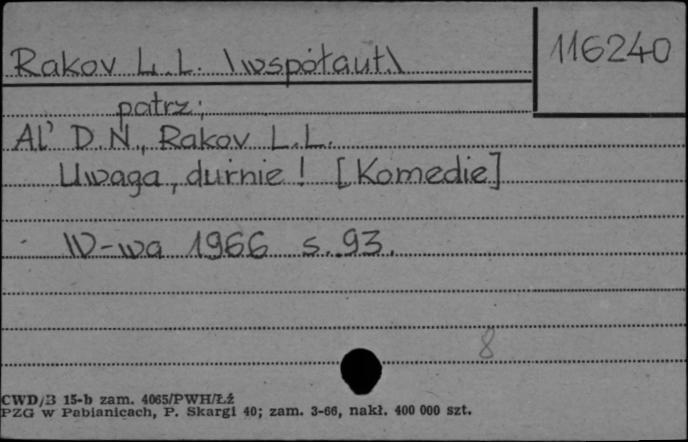 116240
Rakov L. L. \współaut.\
patrz:
Al' D. N., Rakov L. L.
Uwaga, durnie! [Komedie]
W-wa 1966 s. 93.
8
CWD/B 15-b zam. 4065/PWH/Łź
PZG w Pabianicach, P. Skargi 40; zam. 3-66, nakł. 400 000 szt.